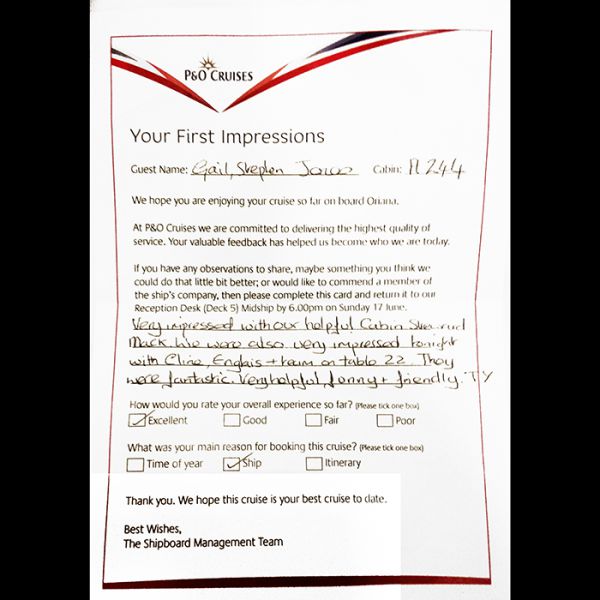 P&O CRUISES
Your First Impressions
Guest Name: Gail, Stephen Cabin: A 244
We hope you are enjoying your cruise so far on board Oriana.
At P&O Cruises we are committed to delivering the highest quality of
service. Your valuable feedback has helped us become who we are today.
If you have any observations to share, maybe something you think we
could do that little bit better; or would like to commend a member of
the ship's company, then please complete this card and return it to our
Reception Desk (Deck 5) Midship by 6.00pm on Sunday 17 June.
Very impressed with our helpful Cabin
Mack. We were also very impressed tonight
with Clive, + team on table 22. They
were fantastic. Very helpful, funny + friendly. TY
How would you rate your overall experience so far? (Please tick one box)
Excellent Good Fair Poor
What was your main reason for booking this cruise? (Please tick one box)
Time of year Ship Itinerary
Thank you. We hope this cruise is your best cruise to date.
Best Wishes,
The Shipboard Management Team